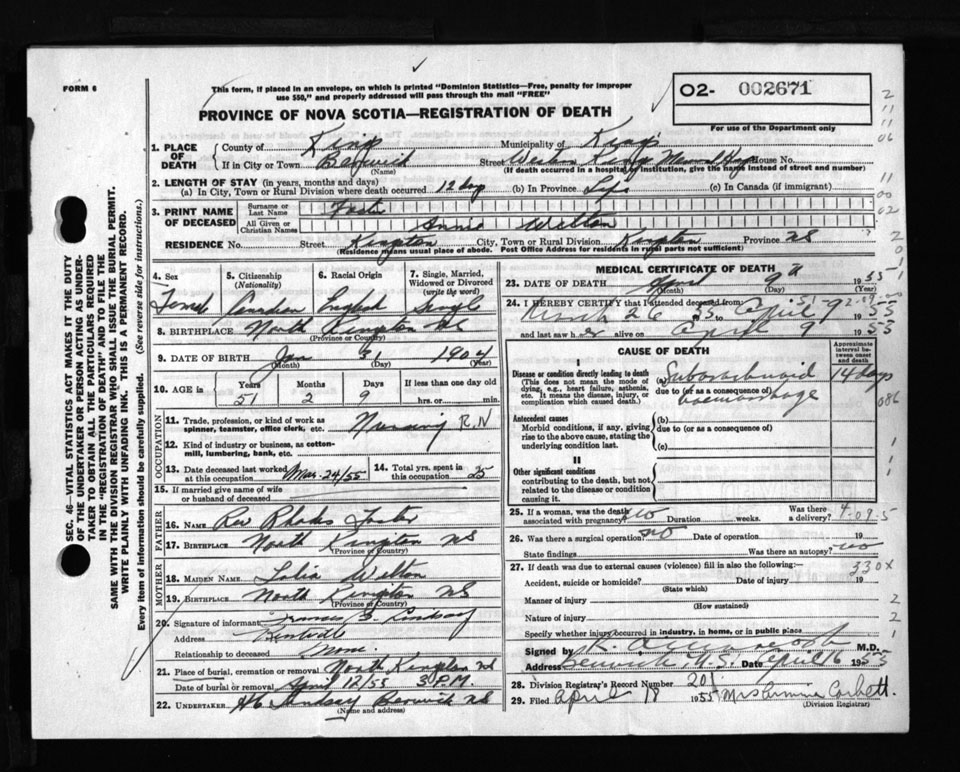 FORM 6
This form, if placed in an envelope, on which is printed "Dominion Statistics—Free, penalty for improper
use $50," and properly addressed will pass through the mail "FREE"
O2- 002671
For use of the Department only
PROVINCE OF NOVA SCOTIA—REGISTRATION OF DEATH
1. PLACE OF DEATH
County of Kings Municipality of Kings
If in City or Town Berwick (Name) Street Western Kings House No.
(If death occurred in a hospital or institution, give the name instead of street and number)
2. LENGTH OF STAY (in years, months and days)
(a) In City, Town or Rural Division where death occurred 12 days (b) In Province Life (c) In Canada (if immigrant)
3. PRINT NAME OF DECEASED
Surname or Last Name Foster
All Given or Christian Names Annie Welton
RESIDENCE No. Street Kingston City, Town or Rural Division Kingston Province NS
(Residence means usual place of abode. Post Office Address for residents in rural parts not sufficient)
4. Sex Female
5. Citizenship (Nationality) Canadian
6. Racial Origin English
7. Single, Married, Widowed or Divorced (write the word) Single
8. BIRTHPLACE North Kingston NS
(Province or Country)
9. DATE OF BIRTH Jan 31 1904
(Month) (Day) (Year)
10. AGE in Years Months Days If less than one day old
51 2 9 hrs. or min.
OCCUPATION
11. Trade, profession, or kind of work as spinner, teamster, office clerk, etc. Nursing R.N
12. Kind of industry or business, as cotton-mill, lumbering, bank, etc.
13. Date deceased last worked at this occupation Mar. 24/55
14. Total yrs. spent in this occupation 25
15. If married give name of wife or husband of deceased
FATHER
16. Name Rev Rhodes Foster
17. Birthplace North Kingston NS
(Province or Country)
MOTHER
18. Maiden Name Welton
19. Birthplace North Kingston NS
(Province or Country)
20. Signature of informant Lindsay
Address
Relationship to deceased none
21. Place of burial, cremation or removal North Kingston NS
Date of burial or removal April 12/55 3 P.M.
22. Undertaker H C Lindsay Berwick NS
(Name and address)
MEDICAL CERTIFICATE OF DEATH
23. DATE OF DEATH April 9 1955
(Month) (Day) (Year)
24. I HEREBY CERTIFY that I attended deceased from
March 26 1955 to April 9 1955
and last saw her alive on April 9 1955
CAUSE OF DEATH
Approximate interval between onset and death
I
Disease or condition directly leading to death
(This does not mean the mode of dying, e.g., heart failure, asthenia, etc. It means the disease, injury, or complication which caused death.)
(a) Subarachnoid 14 days
due to (or as a consequence of)
haemorrhage
Antecedent causes
Morbid conditions, if any, giving rise to the above cause, stating the underlying condition last.
(b)
due to (or as a consequence of)
(c)
II
Other significant conditions
contributing to the death, but not related to the disease or condition causing it.
25. If a woman, was the death associated with pregnancy? no Duration weeks. Was there a delivery?
26. Was there a surgical operation? no Date of operation 19
State findings Was there an autopsy? no
27. If death was due to external causes (violence) fill in also the following:—
Accident, suicide or homicide? Date of injury 19
(State which)
Manner of injury
(How sustained)
Nature of injury
Specify whether injury occurred in industry, in home, or in public place
Signed by M.D.
Address Berwick N.S. Date April 16 1955
28. Division Registrar's Record Number 201
29. Filed April 18 1955 Mrs Corbett.
(Division Registrar)
SEC. 46—VITAL STATISTICS ACT MAKES IT THE DUTY
OF THE UNDERTAKER OR PERSON ACTING AS UNDER-
TAKER TO OBTAIN ALL THE PARTICULARS REQUIRED
IN THE "REGISTRATION OF DEATH" AND TO FILE THE
SAME WITH THE DIVISION REGISTRAR WHO SHALL ISSUE THE BURIAL PERMIT.
WRITE PLAINLY WITH UNFADING INK. THIS IS A PERMANENT RECORD.
Every item of information should be carefully supplied. (See reverse side for instructions.)
2
11
11
06
11
00
02
2
0
1
086
1
1
1
330X
2
2
1